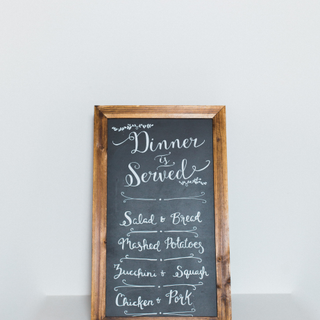 Dinner
is
Served
Salad & Bread
Mashed Potatoes
Zucchini & Squash
Chicken & Pork